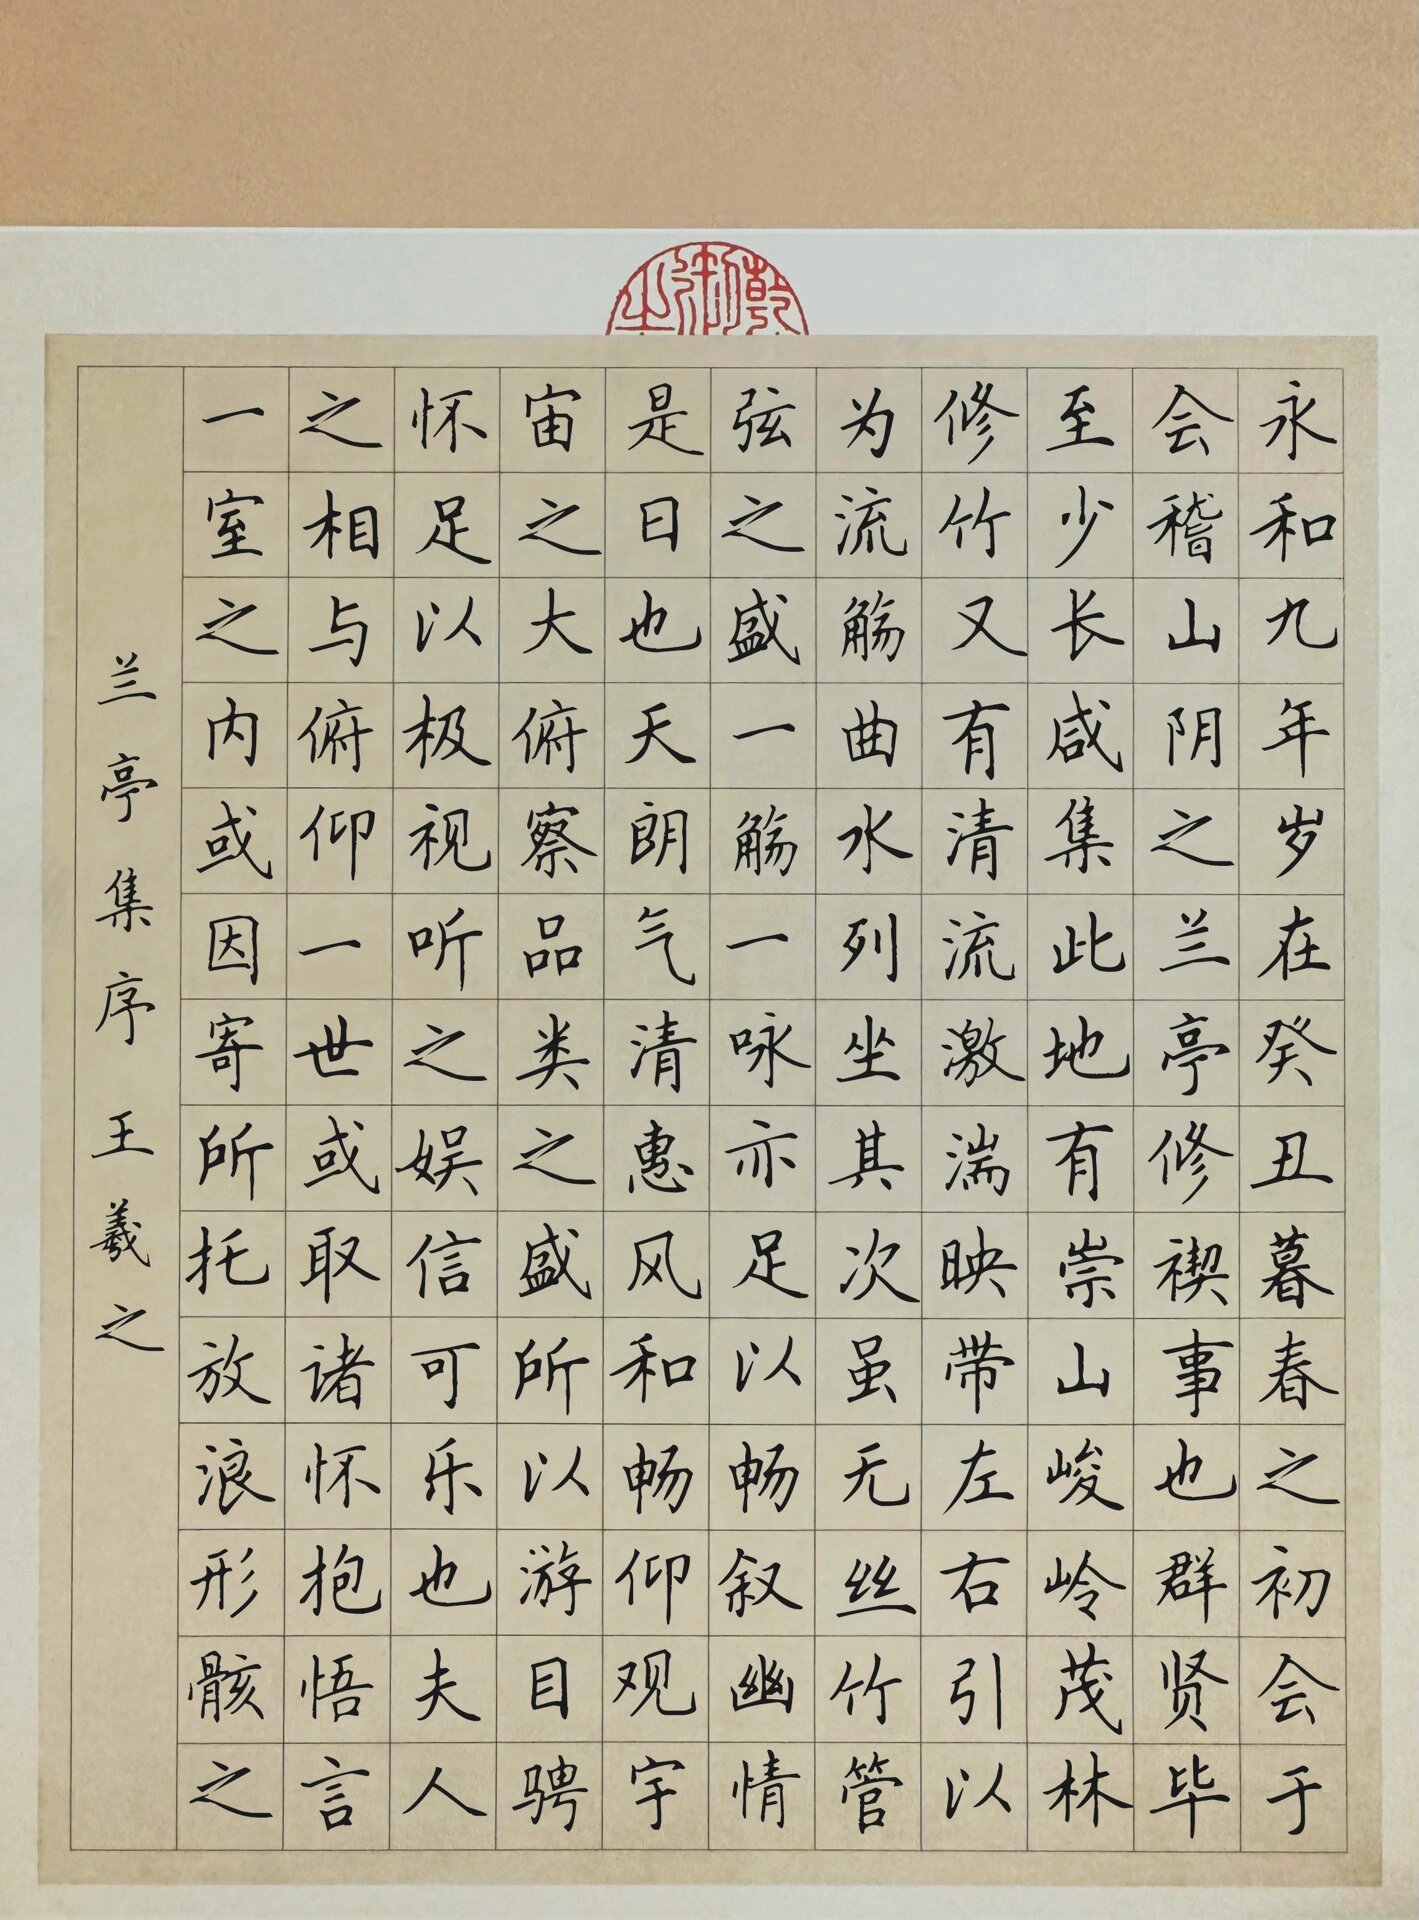 永和九年岁在癸丑暮春之初会于
会稽山阴之兰亭修禊事也群贤毕
至少长咸集此地有崇山峻岭茂林
修竹又有清流激湍映带左右引以
为流觞曲水列坐其次虽无丝竹管
弦之盛一觞一咏亦足以畅叙幽情
是日也天朗气清惠风和畅仰观宇
宙之大俯察品类之盛所以游目骋
怀足以极视听之娱信可乐也夫人
之相与俯仰一世或取诸怀抱悟言
一室之内或因寄所托放浪形骸之
兰亭集序 王羲之